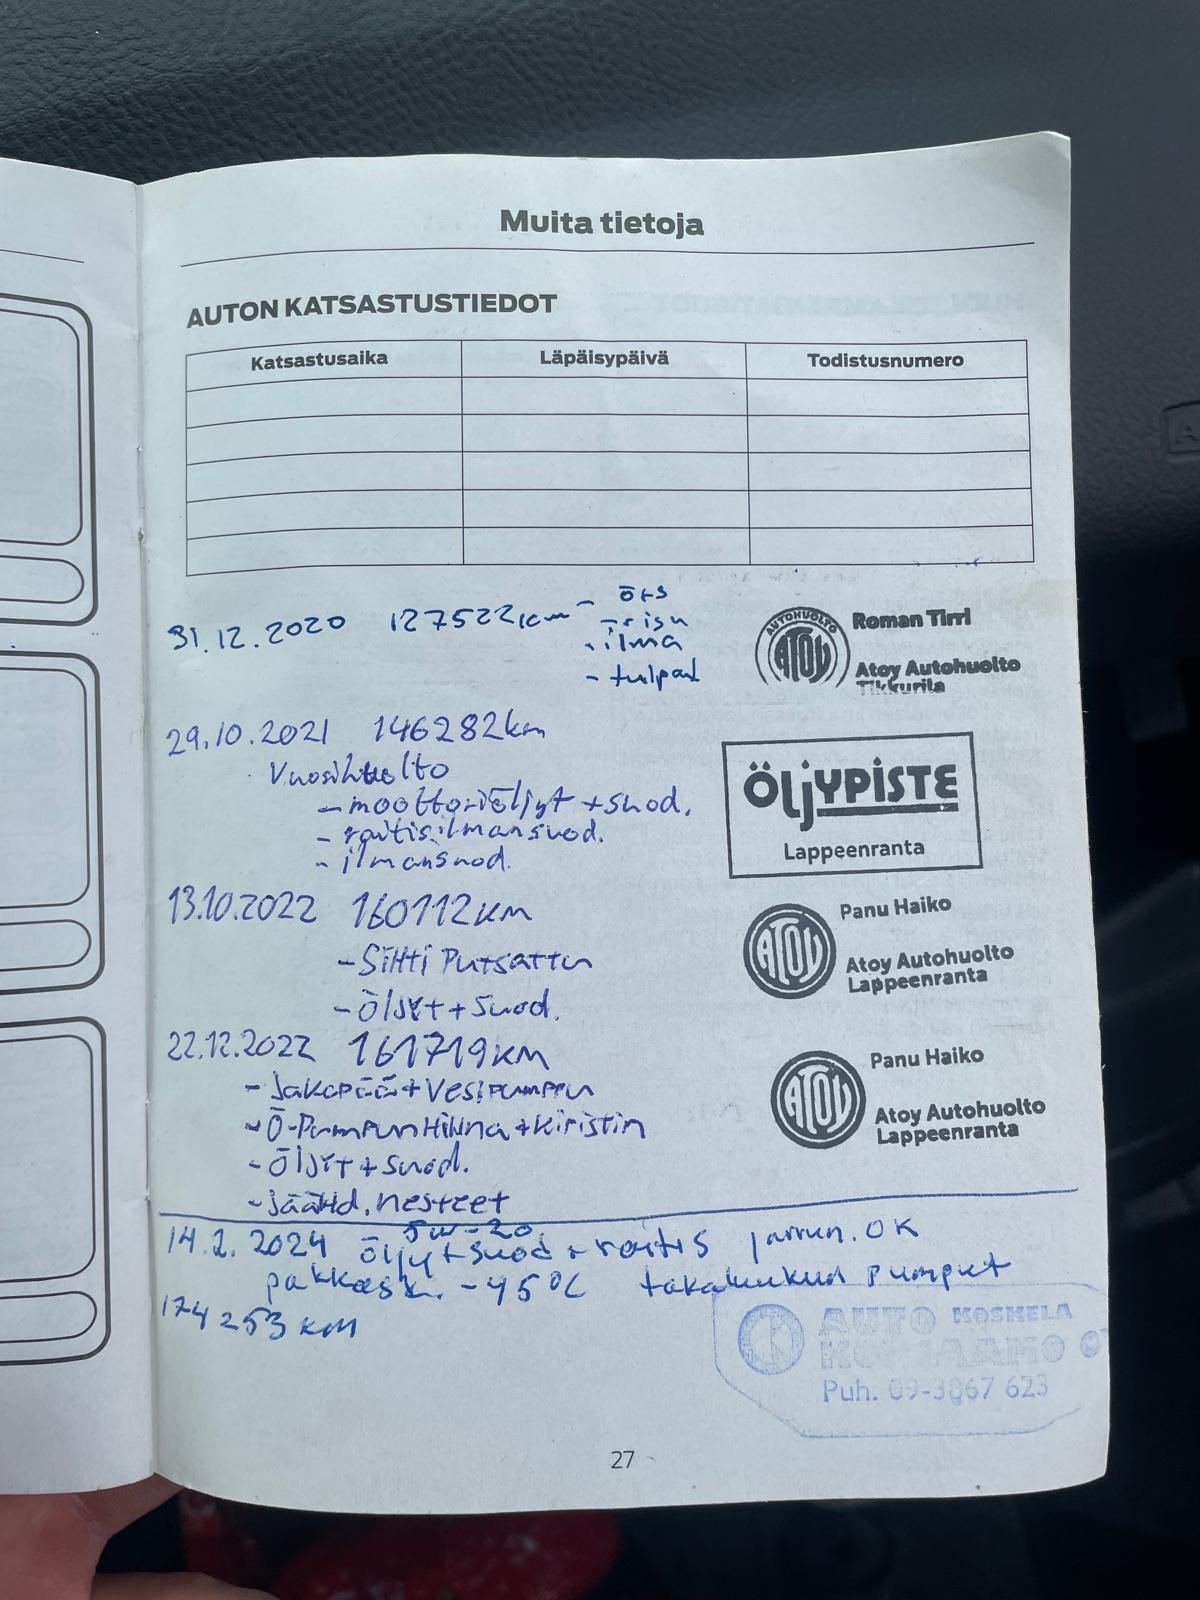 Muita tietoja
AUTON KATSASTUSTIEDOT
Katsastusaika Läpäisypäivä Todistusnumero
31.12.2020 127522km - ö+s
- risu
- ilma
- tulpat
AUTOHUOLTO
ATOY
Roman Tirri
Atoy Autohuolto
Tikkurila
29.10.2021 146282km
Vuosihuolto
- moottoriöljyt + suod.
- raitisilmansuod.
- ilmansuod.
ÖLJYPISTE
Lappeenranta
13.10.2022 160112KM
- Sihti Putsattu
- Öljyt + Suod.
ATOY
Panu Haiko
Atoy Autohuolto
Lappeenranta
22.12.2022 161719KM
- Jakopää + Vesipumppu
- Ö-Pumpun Hihna + Kiristin
- Öljyt + Suod.
- Jäähd. nesteet
ATOY
Panu Haiko
Atoy Autohuolto
Lappeenranta
5W-20
14.2. 2024 öljyt + suod + raitis jarrun. OK
pakkask. -45°C takaluukun pumput
174253 KM
AUTO KOSKELA
Puh. 09-3867 623
27